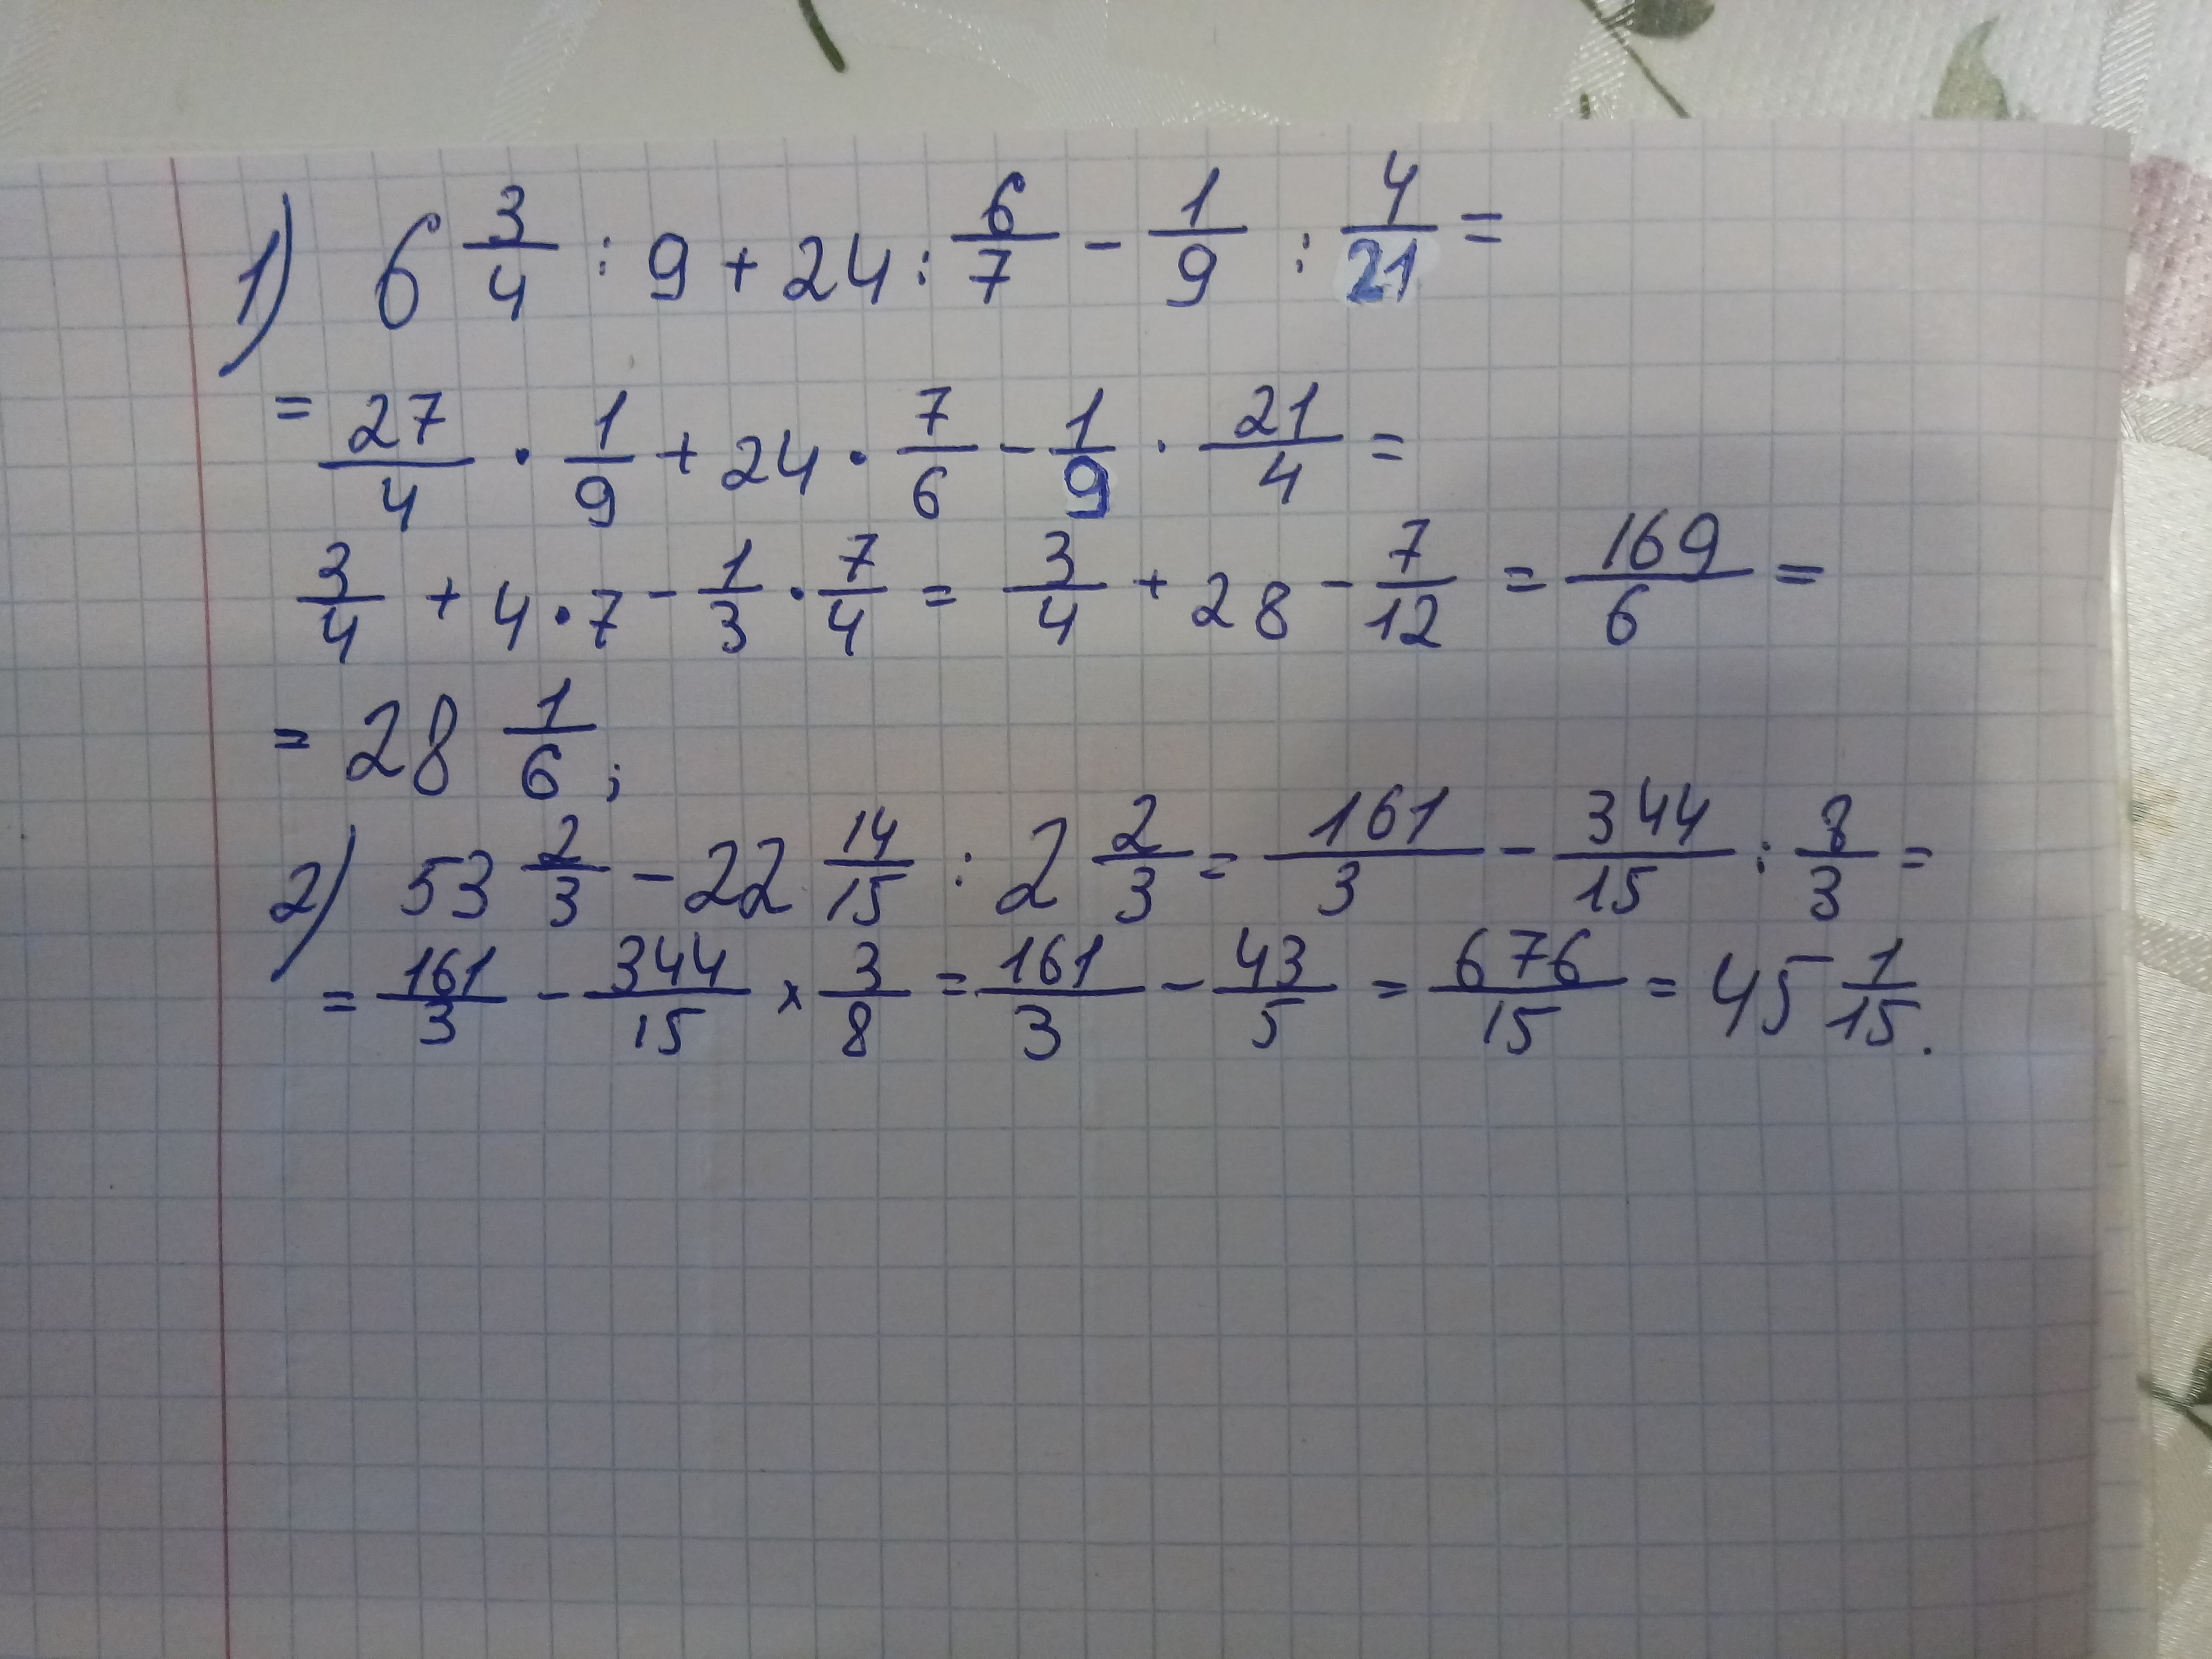 1) 6 3/4 : 9 + 24 : 6/7 - 1/9 : 4/21 =
= 27/4 · 1/9 + 24 · 7/6 - 1/9 · 21/4 =
3/4 + 4 · 7 - 1/3 · 7/4 = 3/4 + 28 - 7/12 = 169/6 =
= 28 1/6;
2) 53 2/3 - 22 14/15 : 2 2/3 = 161/3 - 344/15 : 8/3 =
= 161/3 - 344/15 × 3/8 = 161/3 - 43/5 = 676/15 = 45 1/15.